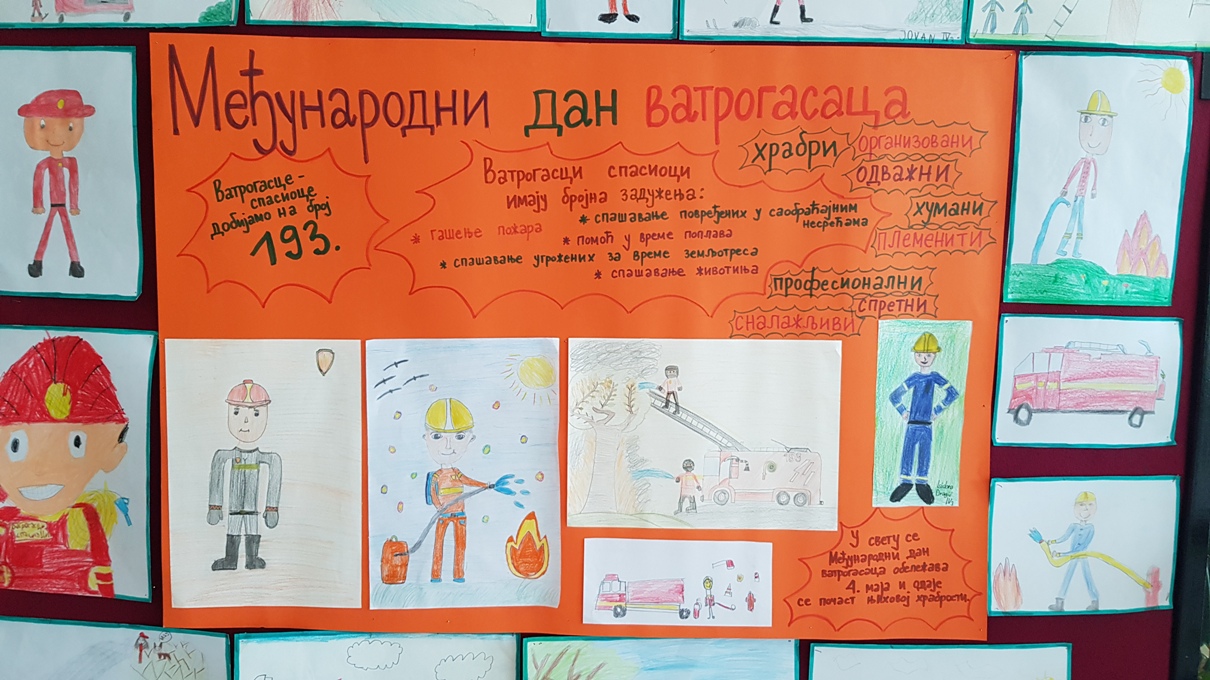 JOVAN IV
Међународни дан ватрогасаца
Ватрогасце -
спасиоце
добијамо на број
193.
Ватрогасци спасиоци
имају бројна задужења:
* спашавање повређених у саобраћајним
несрећама
* гашење пожара
* помоћ у време поплава
* спашавање угрожених за време земљотреса
* спашавање животиња
храбри
организовани
одважни
хумани
племенити
професионални
спретни
сналажљиви
У свету се
Међународни дан
ватрогасаца обележава
4. маја и одаје
се почаст њиховој храбрости.